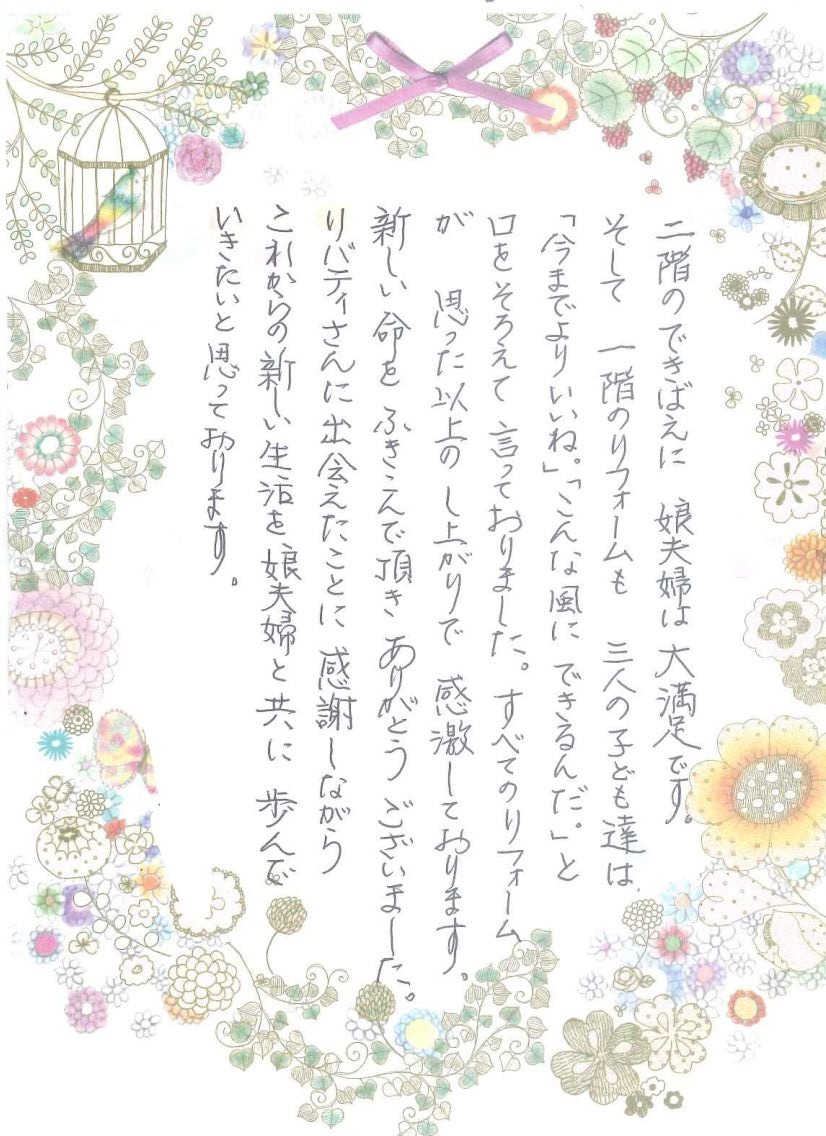 二階のできばえに 娘夫婦は 大満足です。
そして 一階のリフォームも 三人の子ども達は
「今までよりいいね。」「こんな風に できるんだ。」と
口をそろえて 言っておりました。すべてのリフォーム
が 思った以上の し上がりで 感激しております。
新しい命を ふきこんで頂き ありがとう ございました。
リバティさんに出会えたことに 感謝しながら
これからの新しい生活を 娘夫婦と共に 歩んで
いきたいと思っております。